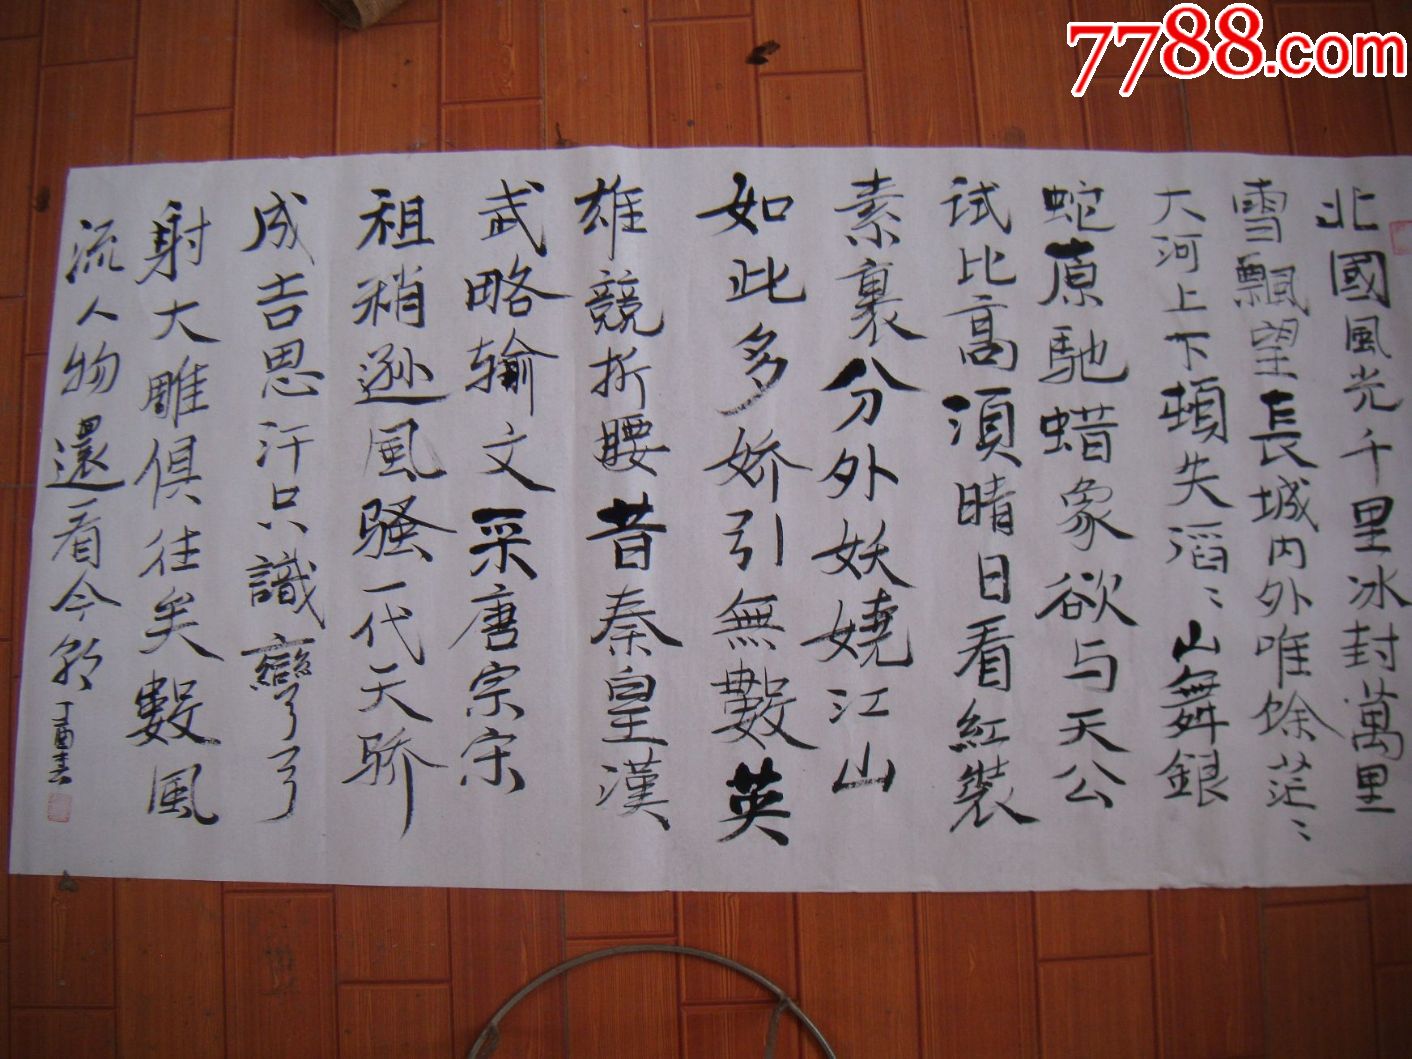 7788.com
北國風光千里冰封萬里
雪飄望長城内外唯餘茫〻
大河上下頓失滔〻山舞銀
蛇原馳蜡象欲与天公
試比高須晴日看紅裝
素裹分外妖嬈江山
如此多娇引無數英
雄競折腰昔秦皇漢
武略输文采唐宗宋
祖稍遜風骚一代天骄
成吉思汗只識彎弓
射大雕俱往矣數風
流人物還看今朝
丁酉書